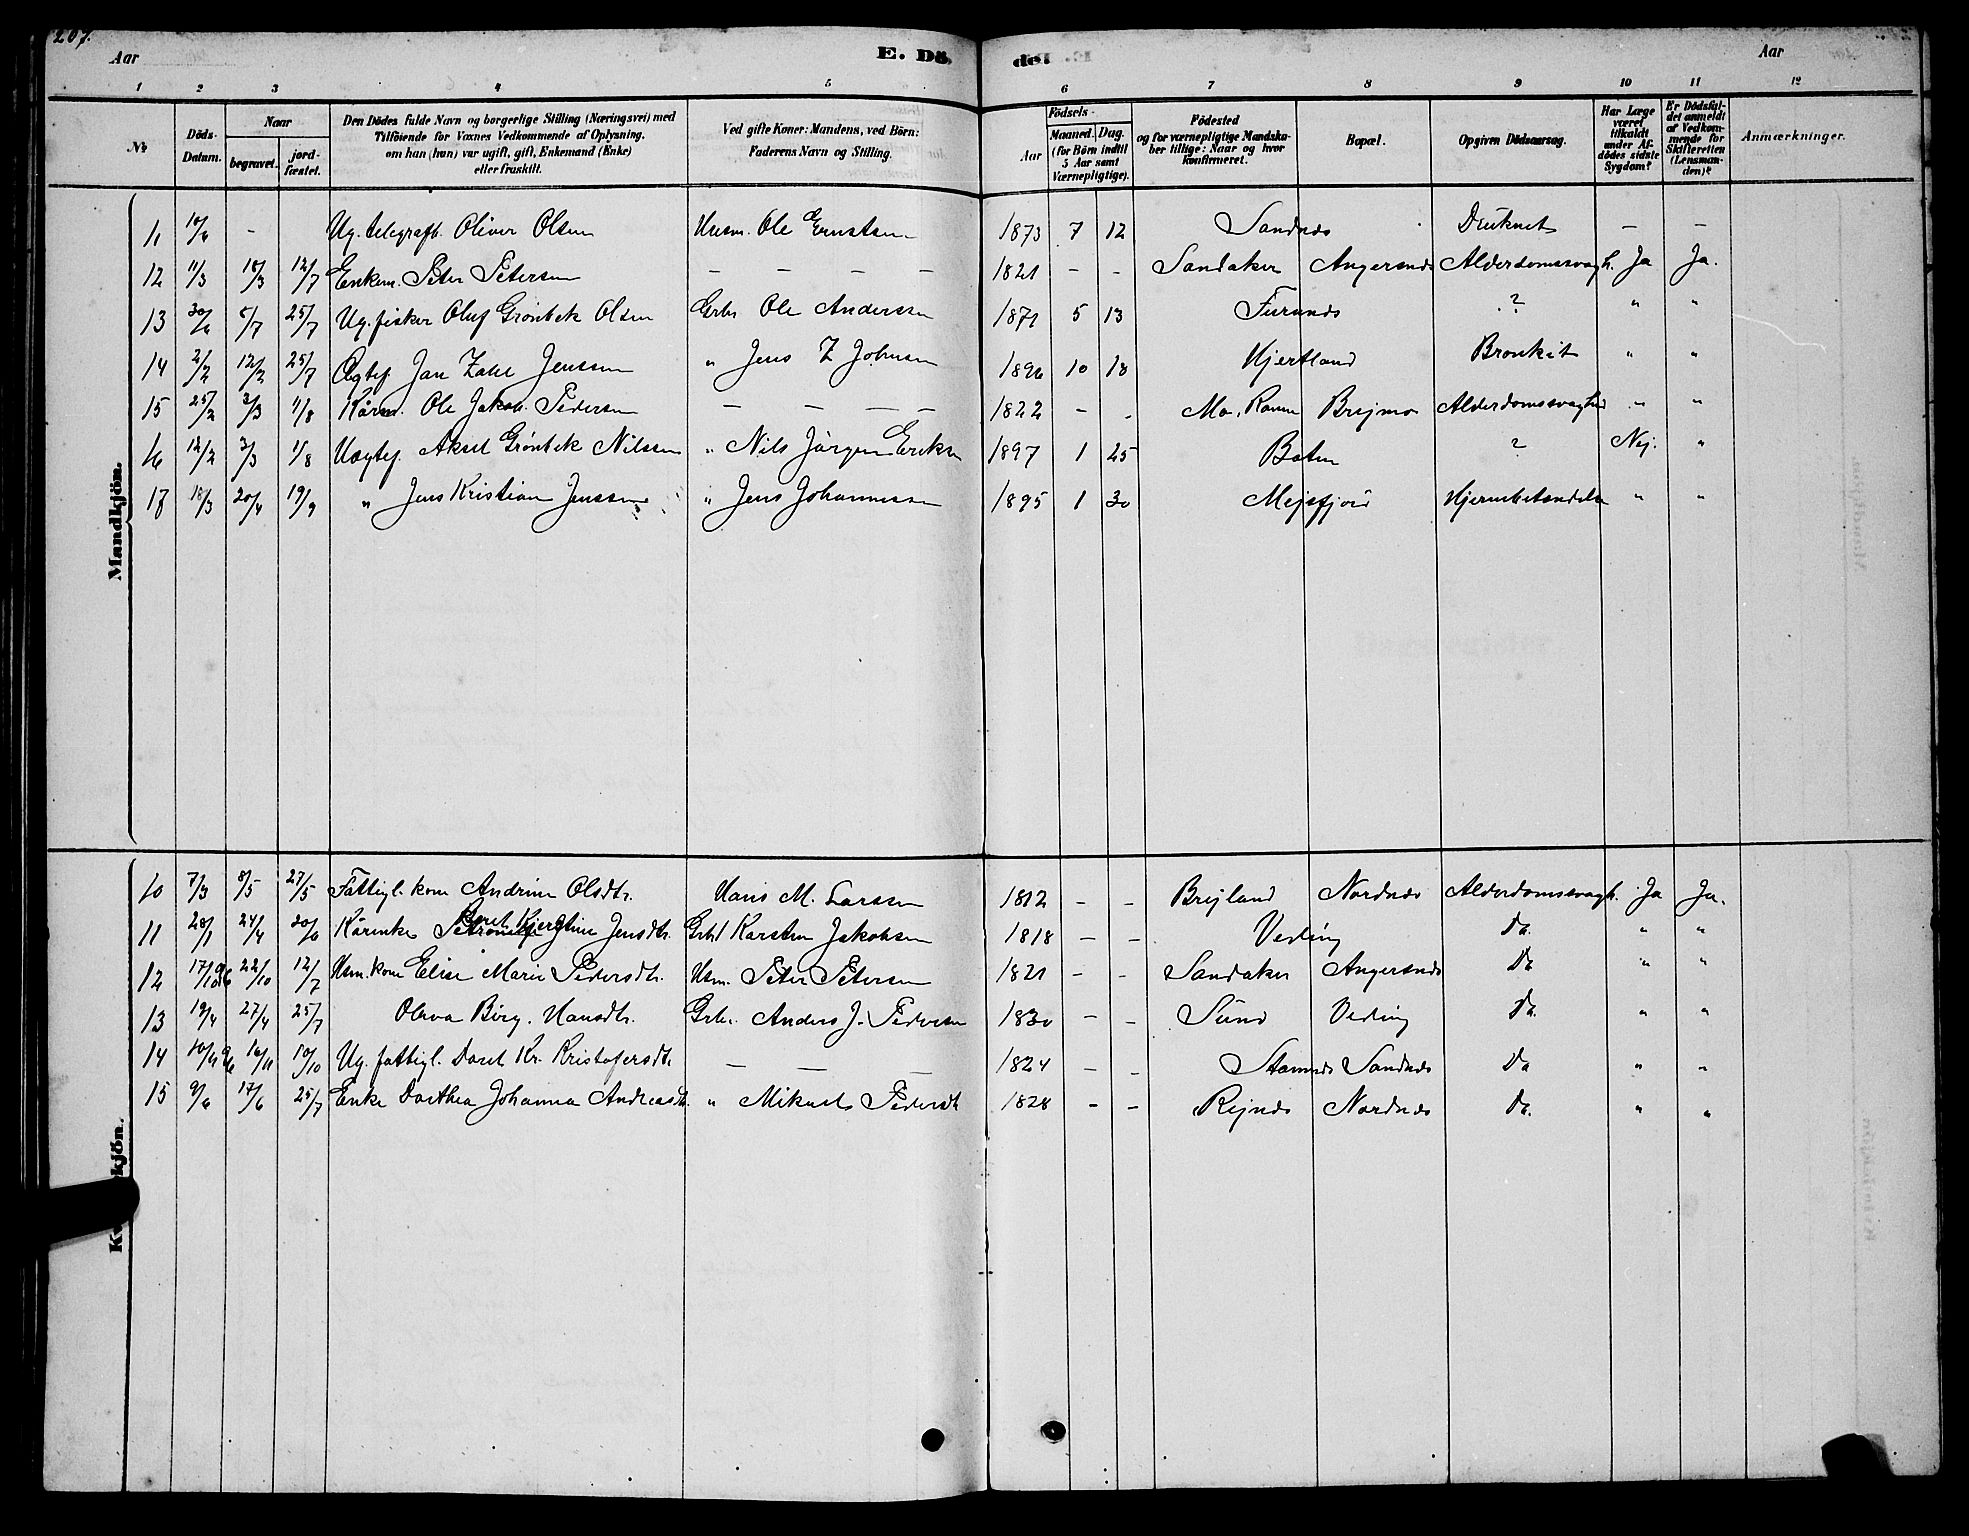 207.
Aar E. Dö. de. Aar
1 2 3 4 5 6 7 8 9 10 11 12
№ Döds-Datum. Naar begravet. jord-fæstet. Den Dödes fulde Navn og borgerlige Stilling (Næringsvei) med Tilföiende for Voxnes Vedkommende af Oplysning. om han (hun) var ugift, gift, Enkemand (Enke) eller fraskilt. Ved gifte Koner: Mandens, ved Börn: Faderens Navn og Stilling. Födsels- Aar Maaned. Dag. (for Börn indtil 5 Aar samt Værnepligtige). Födested og for værnepligtige Mandskaber tillige: Naar og hvor konfirmeret. Bopæl. Opgiven Dödsaarsag. Har Læge været tilkaldt under Afdödes sidste Sygdom? Er Dödsfaldet anmeldt af Vedkommende for Skifteretten (Lensmanden)? Anmærkninger.
Mandkjön.
11 10/6 - Ug. telegrafb. Oliver Olsen Husm. Ole Ernstsen 1873 7 12 Sandnes Druknet - -
12 11/3 18/3 12/7 Enkem. Peter Petersen - - - - 1821 - - Sandaker Angersnes Alderdomssvagh. Ja Ja.
13 30/6 5/7 25/7 Ug. fisker Oluf Grønbek Olsen Grbr Ole Andersen 1871 5 13 Furunes ? " "
14 2/2 12/2 25/7 Ægtef Jan Zahl Jenssen " Jens Z Johnsen 1896 10 18 Hjertland Bronkit " "
15 25/2 3/3 1/8 Kårm. Ole Jakob Pedersen - - - - 1822 - - Mo, Ranen Brejmo Alderdomssvaghed " "
16 12/2 3/3 1/8 Uægtef. Aksel Grønbek Nilssen " Nils Jørgen Eriksen 1897 1 25 Baten ? Nej. "
17 18/3 20/4 19/9 " Jens Kristian Jenssen " Jens Johannessen 1895 1 30 Mejsfjord Hjernebetændelse " "
10 7/3 8/5 27/5 Fattigl. kone Andrine Olsdtr. Hans M. Larssen 1812 - - Brejland Nordnes Alderdomssvagh. Ja Ja.
11 28/1 24/4 20/6 Kårenke Beret Kjerstine Jensdtr. Grbr Karsten Jakobsen 1818 - - Veding Do. " "
12 17/10 96 22/10 12/7 Hsm. kone Elise Marie Pedersdtr. Hsm. Peter Petersen 1821 - - Sandaker Angersnes Do " "
13 19/4 27/4 25/7 Oleva Birg. Hansdtr. Grbr. Anders J. Pedersen 1830 - - Sund Veding Do. " "
14 10/9 96 16/11 10/10 Ug. fattigl. Doret Kr. Kristofersdtr. - - - 1824 - - Stamnes Sandnes Do " "
15 9/6 17/6 25/7 Enke Dorthea Johanna Andreasdtr. " Mikael Pedersen 1828 - - Rejnes Nordnes Do. " "